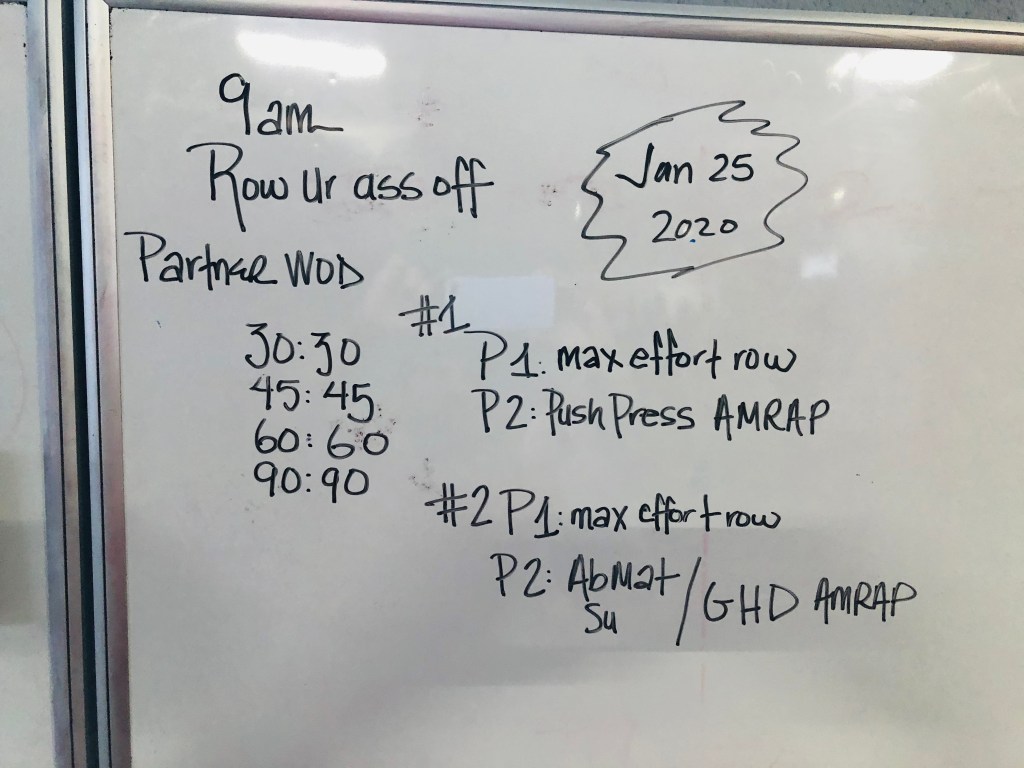 9am
Row Ur ass off
Jan 25
2020
Partner WOD
30:30
45:45
60:60
90:90
#1
P1: max effort row
P2: Push Press AMRAP
#2 P1: max effort row
P2: AbMat / GHD AMRAP
Su